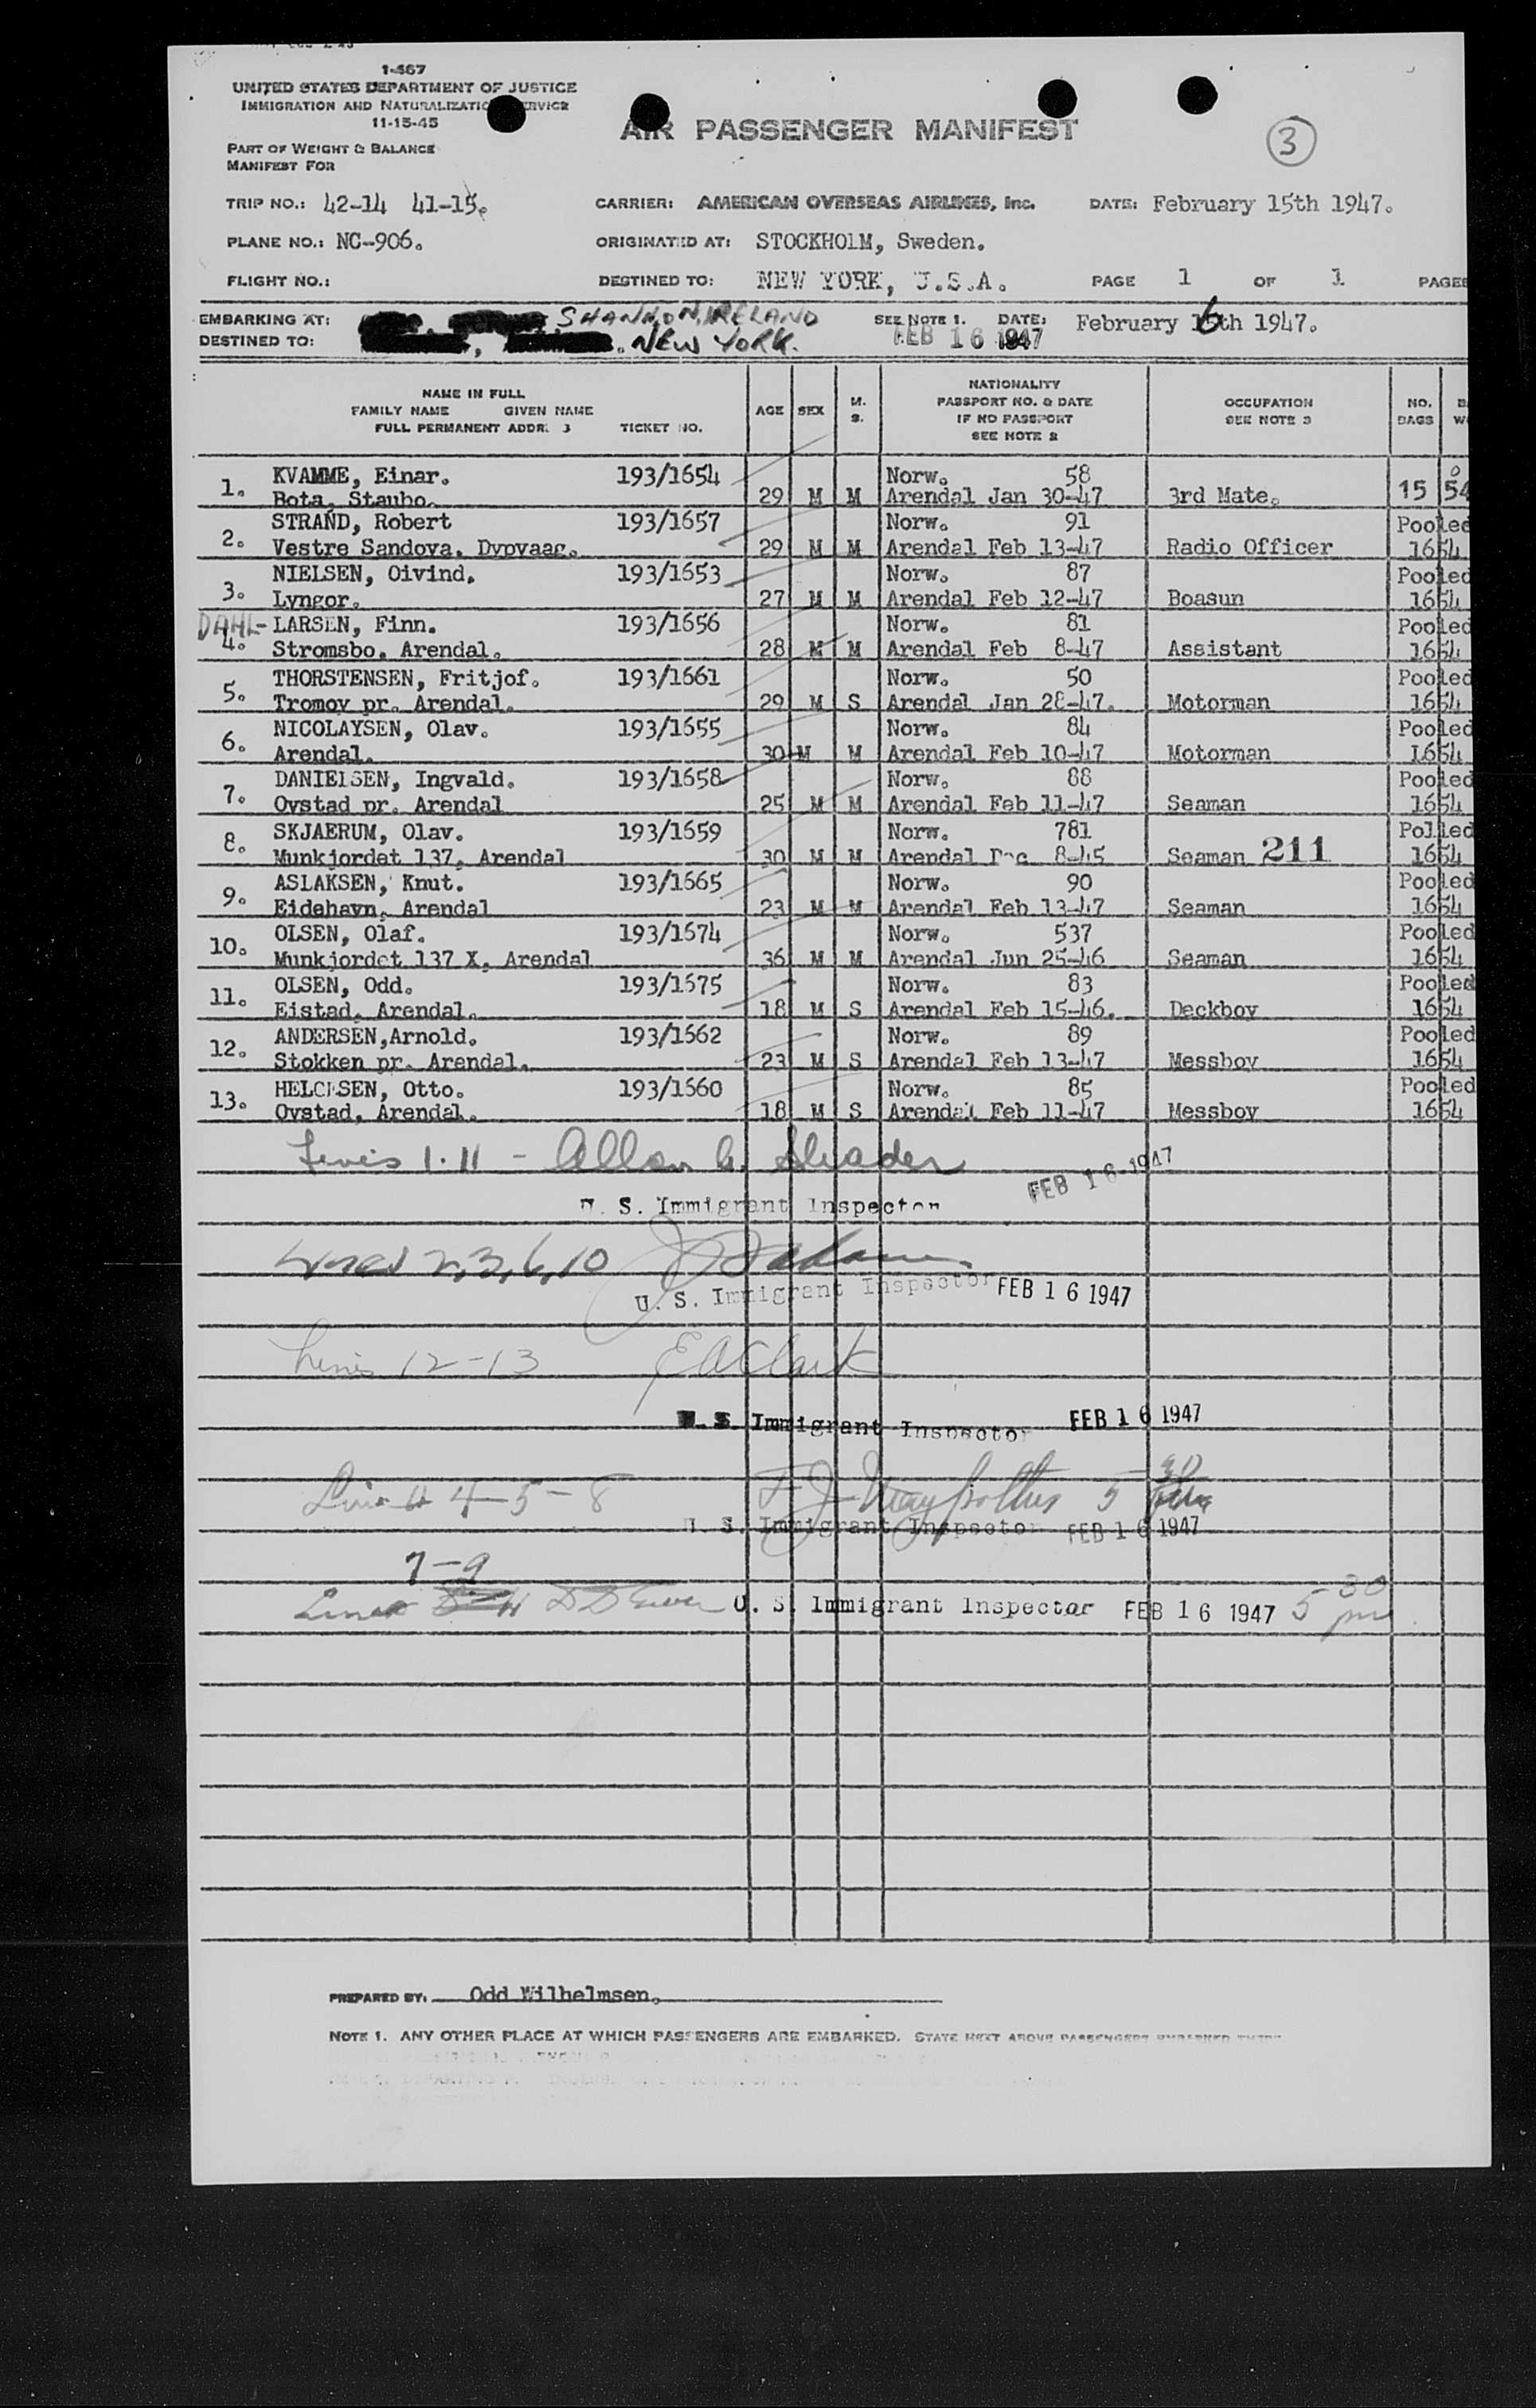 1-467
UNITED STATES DEPARTMENT OF JUSTICE
IMMIGRATION AND NATURALIZATION SERVICE
11-15-45
AIR PASSENGER MANIFEST
3
PART OF WEIGHT & BALANCE
MANIFEST FOR
TRIP NO.: 42-14 41-15. CARRIER: AMERICAN OVERSEAS AIRLINES, Inc. DATE: February 15th 1947.
PLANE NO.: NC-906. ORIGINATED AT: STOCKHOLM, Sweden.
FLIGHT NO.: DESTINED TO: NEW YORK, U.S.A. PAGE 1 OF 1 PAGES
EMBARKING AT: SHANNON, IRELAND SEE NOTE 1. DATE: February 16th 1947.
DESTINED TO: NEW YORK. FEB 16 1947
NAME IN FULL
FAMILY NAME GIVEN NAME
FULL PERMANENT ADDR. 3 TICKET NO. AGE SEX M. S. NATIONALITY PASSPORT NO. & DATE IF NO PASSPORT SEE NOTE 2 OCCUPATION SEE NOTE 3 NO. BAGS
1. KVAMME, Einar. 193/1654 Norw. 58
Bota, Staubo. 29 M M Arendal Jan 30-47 3rd Mate. 15 54
2. STRAND, Robert 193/1657 Norw. 91 Pooled
Vestre Sandoya. Dypvaag. 29 M M Arendal Feb 13-47 Radio Officer 1654
3. NIELSEN, Oivind. 193/1653 Norw. 87 Pooled
Lyngor. 27 M M Arendal Feb 12-47 Boasun 1654
DAHL-
4. LARSEN, Finn. 193/1656 Norw. 81 Pooled
Stromsbo. Arendal. 28 M M Arendal Feb 8-47 Assistant 1654
5. THORSTENSEN, Fritjof. 193/1661 Norw. 50 Pooled
Tromoy pr. Arendal. 29 M S Arendal Jan 28-47. Motorman 1654
6. NICOLAYSEN, Olav. 193/1655 Norw. 84 Pooled
Arendal. 30 M M Arendal Feb 10-47 Motorman 1654
7. DANIELSEN, Ingvald. 193/1658 Norw. 88 Pooled
Oystad pr. Arendal 25 M M Arendal Feb 11-47 Seaman 1654
8. SKJAERUM, Olav. 193/1659 Norw. 781 Polled
Munkjordet 137, Arendal 30 M M Arendal Dec 8-45 Seaman 211 1654
9. ASLAKSEN, Knut. 193/1665 Norw. 90 Pooled
Eidehavn, Arendal 23 M M Arendal Feb 13-47 Seaman 1654
10. OLSEN, Olaf. 193/1674 Norw. 537 Pooled
Munkjordet 137 X, Arendal 36 M M Arendal Jun 25-46 Seaman 1654
11. OLSEN, Odd. 193/1675 Norw. 83 Pooled
Eistad, Arendal. 18 M S Arendal Feb 15-46. Deckboy 1654
12. ANDERSEN,Arnold. 193/1662 Norw. 89 Pooled
Stokken pr. Arendal. 23 M S Arendal Feb 13-47 Messboy 1654
13. HELGESEN, Otto. 193/1660 Norw. 85 Pooled
Oystad, Arendal. 18 M S Arendal Feb 11-47 Messboy 1654
1.11 - Allan
U. S. Immigrant Inspector FEB 16 1947
Lines 2,3,6,10
U. S. Immigrant Inspector FEB 16 1947
Lines 12-13 E A Clark
U. S. Immigrant Inspector FEB 16 1947
Line # 4-5-8 5 30 pm
U. S. Immigrant Inspector FEB 16 1947
7-9
Lines U. S. Immigrant Inspector FEB 16 1947 5-30 pm
PREPARED BY: Odd Wilhelmsen.
NOTE 1. ANY OTHER PLACE AT WHICH PASSENGERS ARE EMBARKED. STATE NEXT ABOVE PASSENGERS EMBARKED